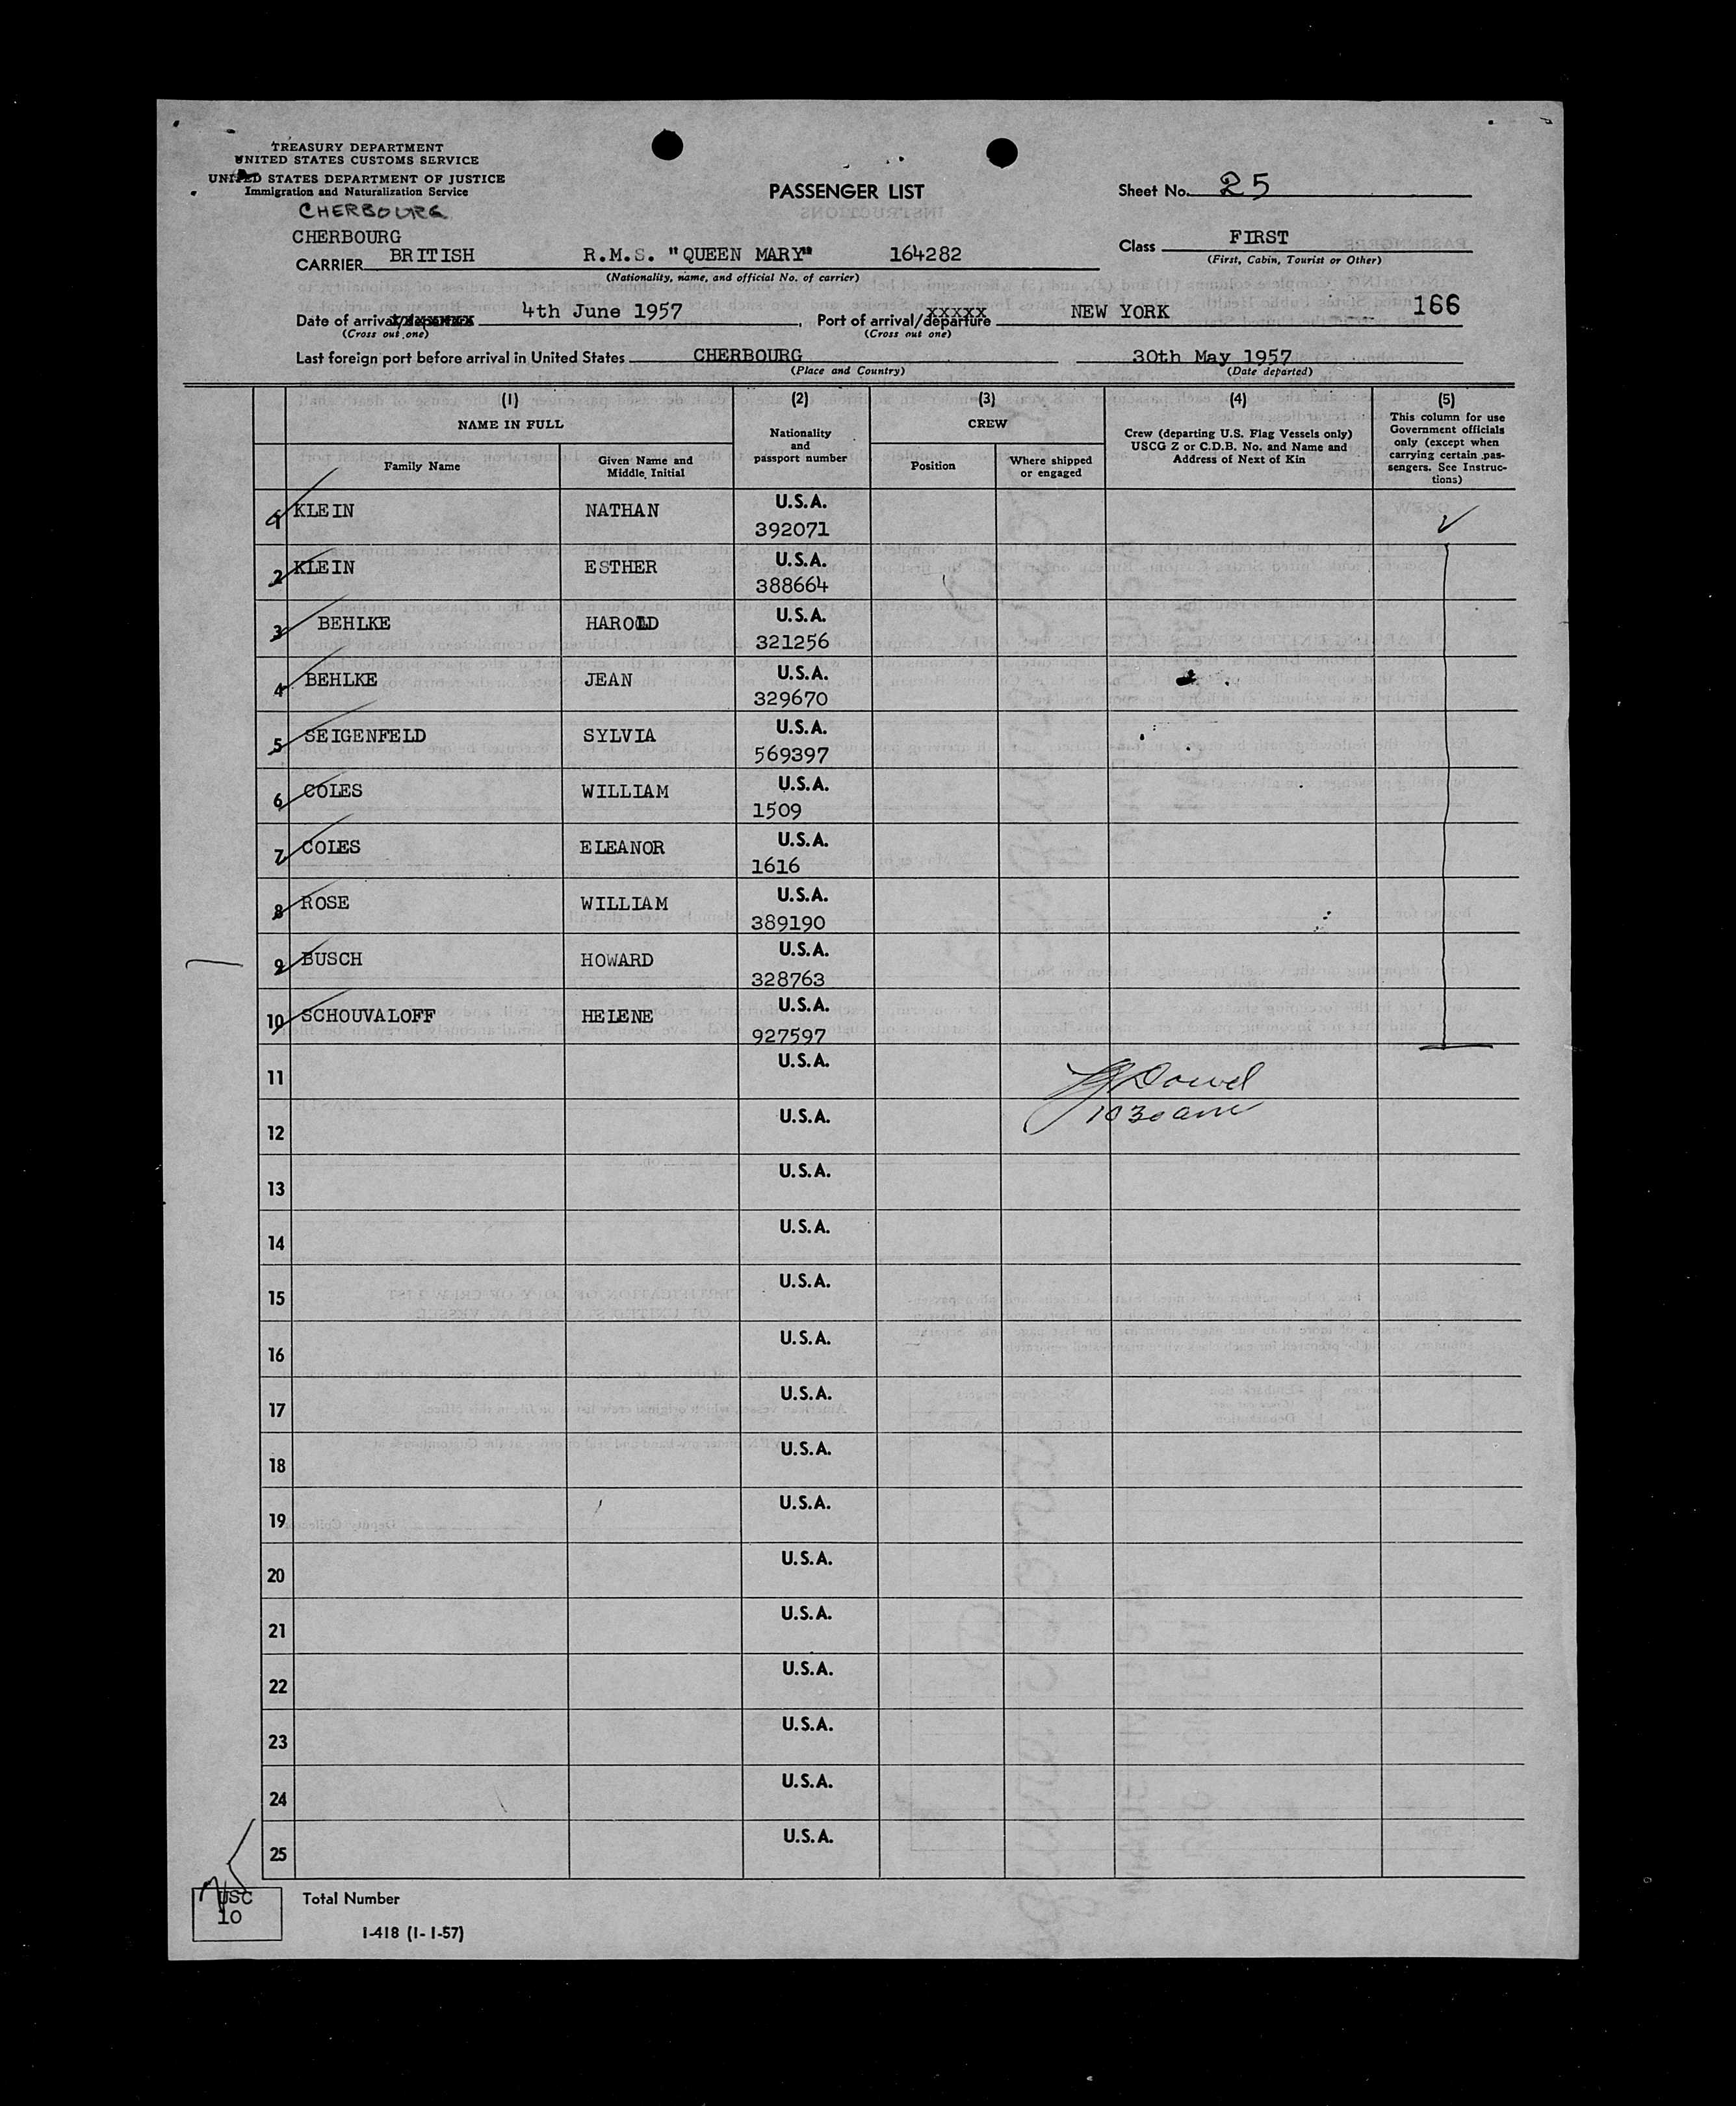 TREASURY DEPARTMENT
UNITED STATES CUSTOMS SERVICE
UNITED STATES DEPARTMENT OF JUSTICE
Immigration and Naturalization Service
CHERBOURG
PASSENGER LIST
Sheet No. 25
CHERBOURG
CARRIER BRITISH R.M.S. "QUEEN MARY" 164282
(Nationality, name, and official No. of carrier)
Class FIRST
(First, Cabin, Tourist or Other)
Date of arrival/departure 4th June 1957, Port of arrival/departure NEW YORK 166
(Cross out one) (Cross out one)
Last foreign port before arrival in United States CHERBOURG 30th May 1957
(Place and Country) (Date departed)
(1) (2) (3) (4) (5)
NAME IN FULL
Family Name
Given Name and Middle Initial
Nationality and passport number
CREW
Position
Where shipped or engaged
Crew (departing U.S. Flag Vessels only)
USCG Z or C.D.B. No. and Name and
Address of Next of Kin
This column for use
Government officials
only (except when
carrying certain pas-
sengers. See Instruc-
tions)
1 KLEIN NATHAN U.S.A. 392071
2 KLEIN ESTHER U.S.A. 388664
3 BEHLKE HAROLD U.S.A. 321256
4 BEHLKE JEAN U.S.A. 329670
5 SEIGENFELD SYLVIA U.S.A. 569397
6 COLES WILLIAM U.S.A. 1509
7 COLES ELEANOR U.S.A. 1616
8 ROSE WILLIAM U.S.A. 389190
9 BUSCH HOWARD U.S.A. 328763
10 SCHOUVALOFF HELENE U.S.A. 927597
11 U.S.A.
12 U.S.A. 1030 am
13 U.S.A.
14 U.S.A.
15 U.S.A.
16 U.S.A.
17 U.S.A.
18 U.S.A.
19 U.S.A.
20 U.S.A.
21 U.S.A.
22 U.S.A.
23 U.S.A.
24 U.S.A.
25 U.S.A.
USC
10
Total Number
I-418 (1-1-57)